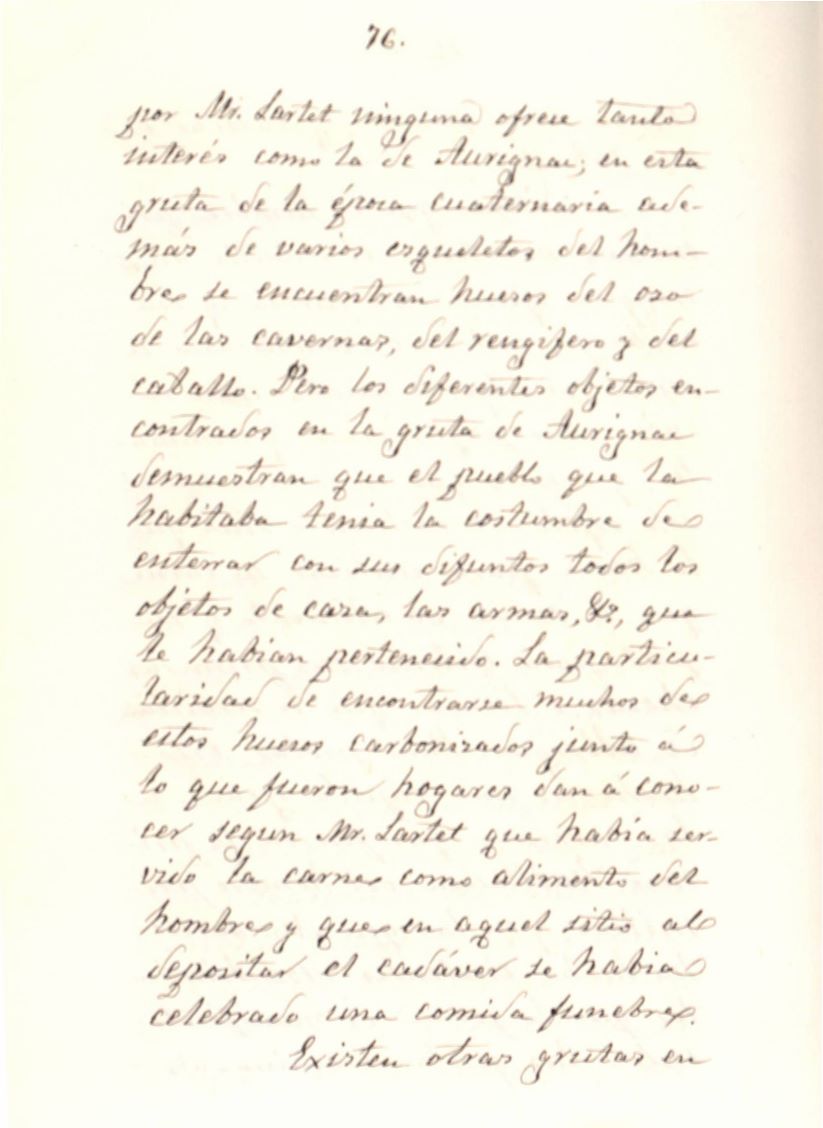 76.
por Mr. Lartet ninguna ofrece tanto
interés como la de Aurignac; en esta
gruta de la época cuaternaria ade-
más de varios esqueletos del hom-
bre se encuentran huesos del oso
de las cavernas, del rengifero y del
caballo. Pero los diferentes objetos en-
contrados en la gruta de Aurignac
demuestran que el pueblo que la
habitaba tenia la costumbre de
enterrar con sus difuntos todos los
objetos de caza, las armas, &ª, que
le habian pertenecido. La particu-
laridad de encontrarse muchos de
estos huesos carbonizados junto á
lo que fueron hogares dan á cono-
cer segun Mr. Lartet que habia ser-
vido la carne como alimento del
hombre y que en aquel sitio al
depositar el cadáver se habia
celebrado una comida funebre.
Existen otras grutas en